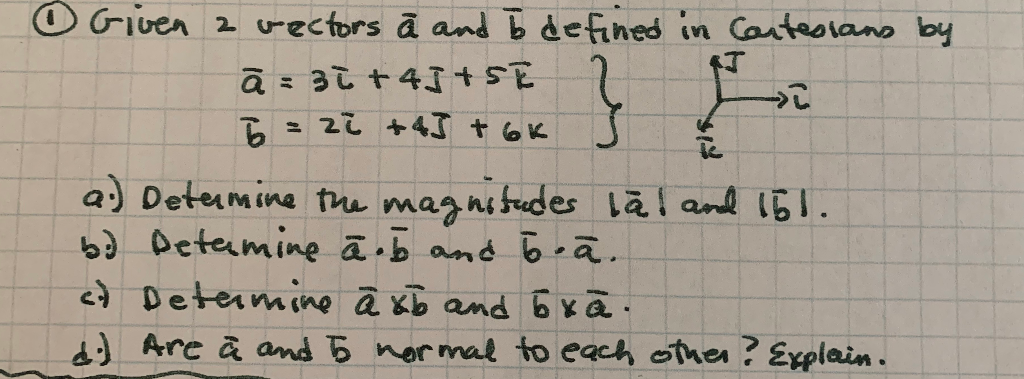 ① Given 2 vectors ā and b̄ defined in Cartesians by
ā = 3ī + 4J̄ + 5k̄
b̄ = 2ī + 4J̄ + 6k
J̄
ī
k̄
a.) Determine the magnitudes |ā| and |b̄|.
b.) Determine ā·b̄ and b̄·ā.
c.) Determine ā x b̄ and b̄ x ā.
d.) Are ā and b̄ normal to each other? Explain.